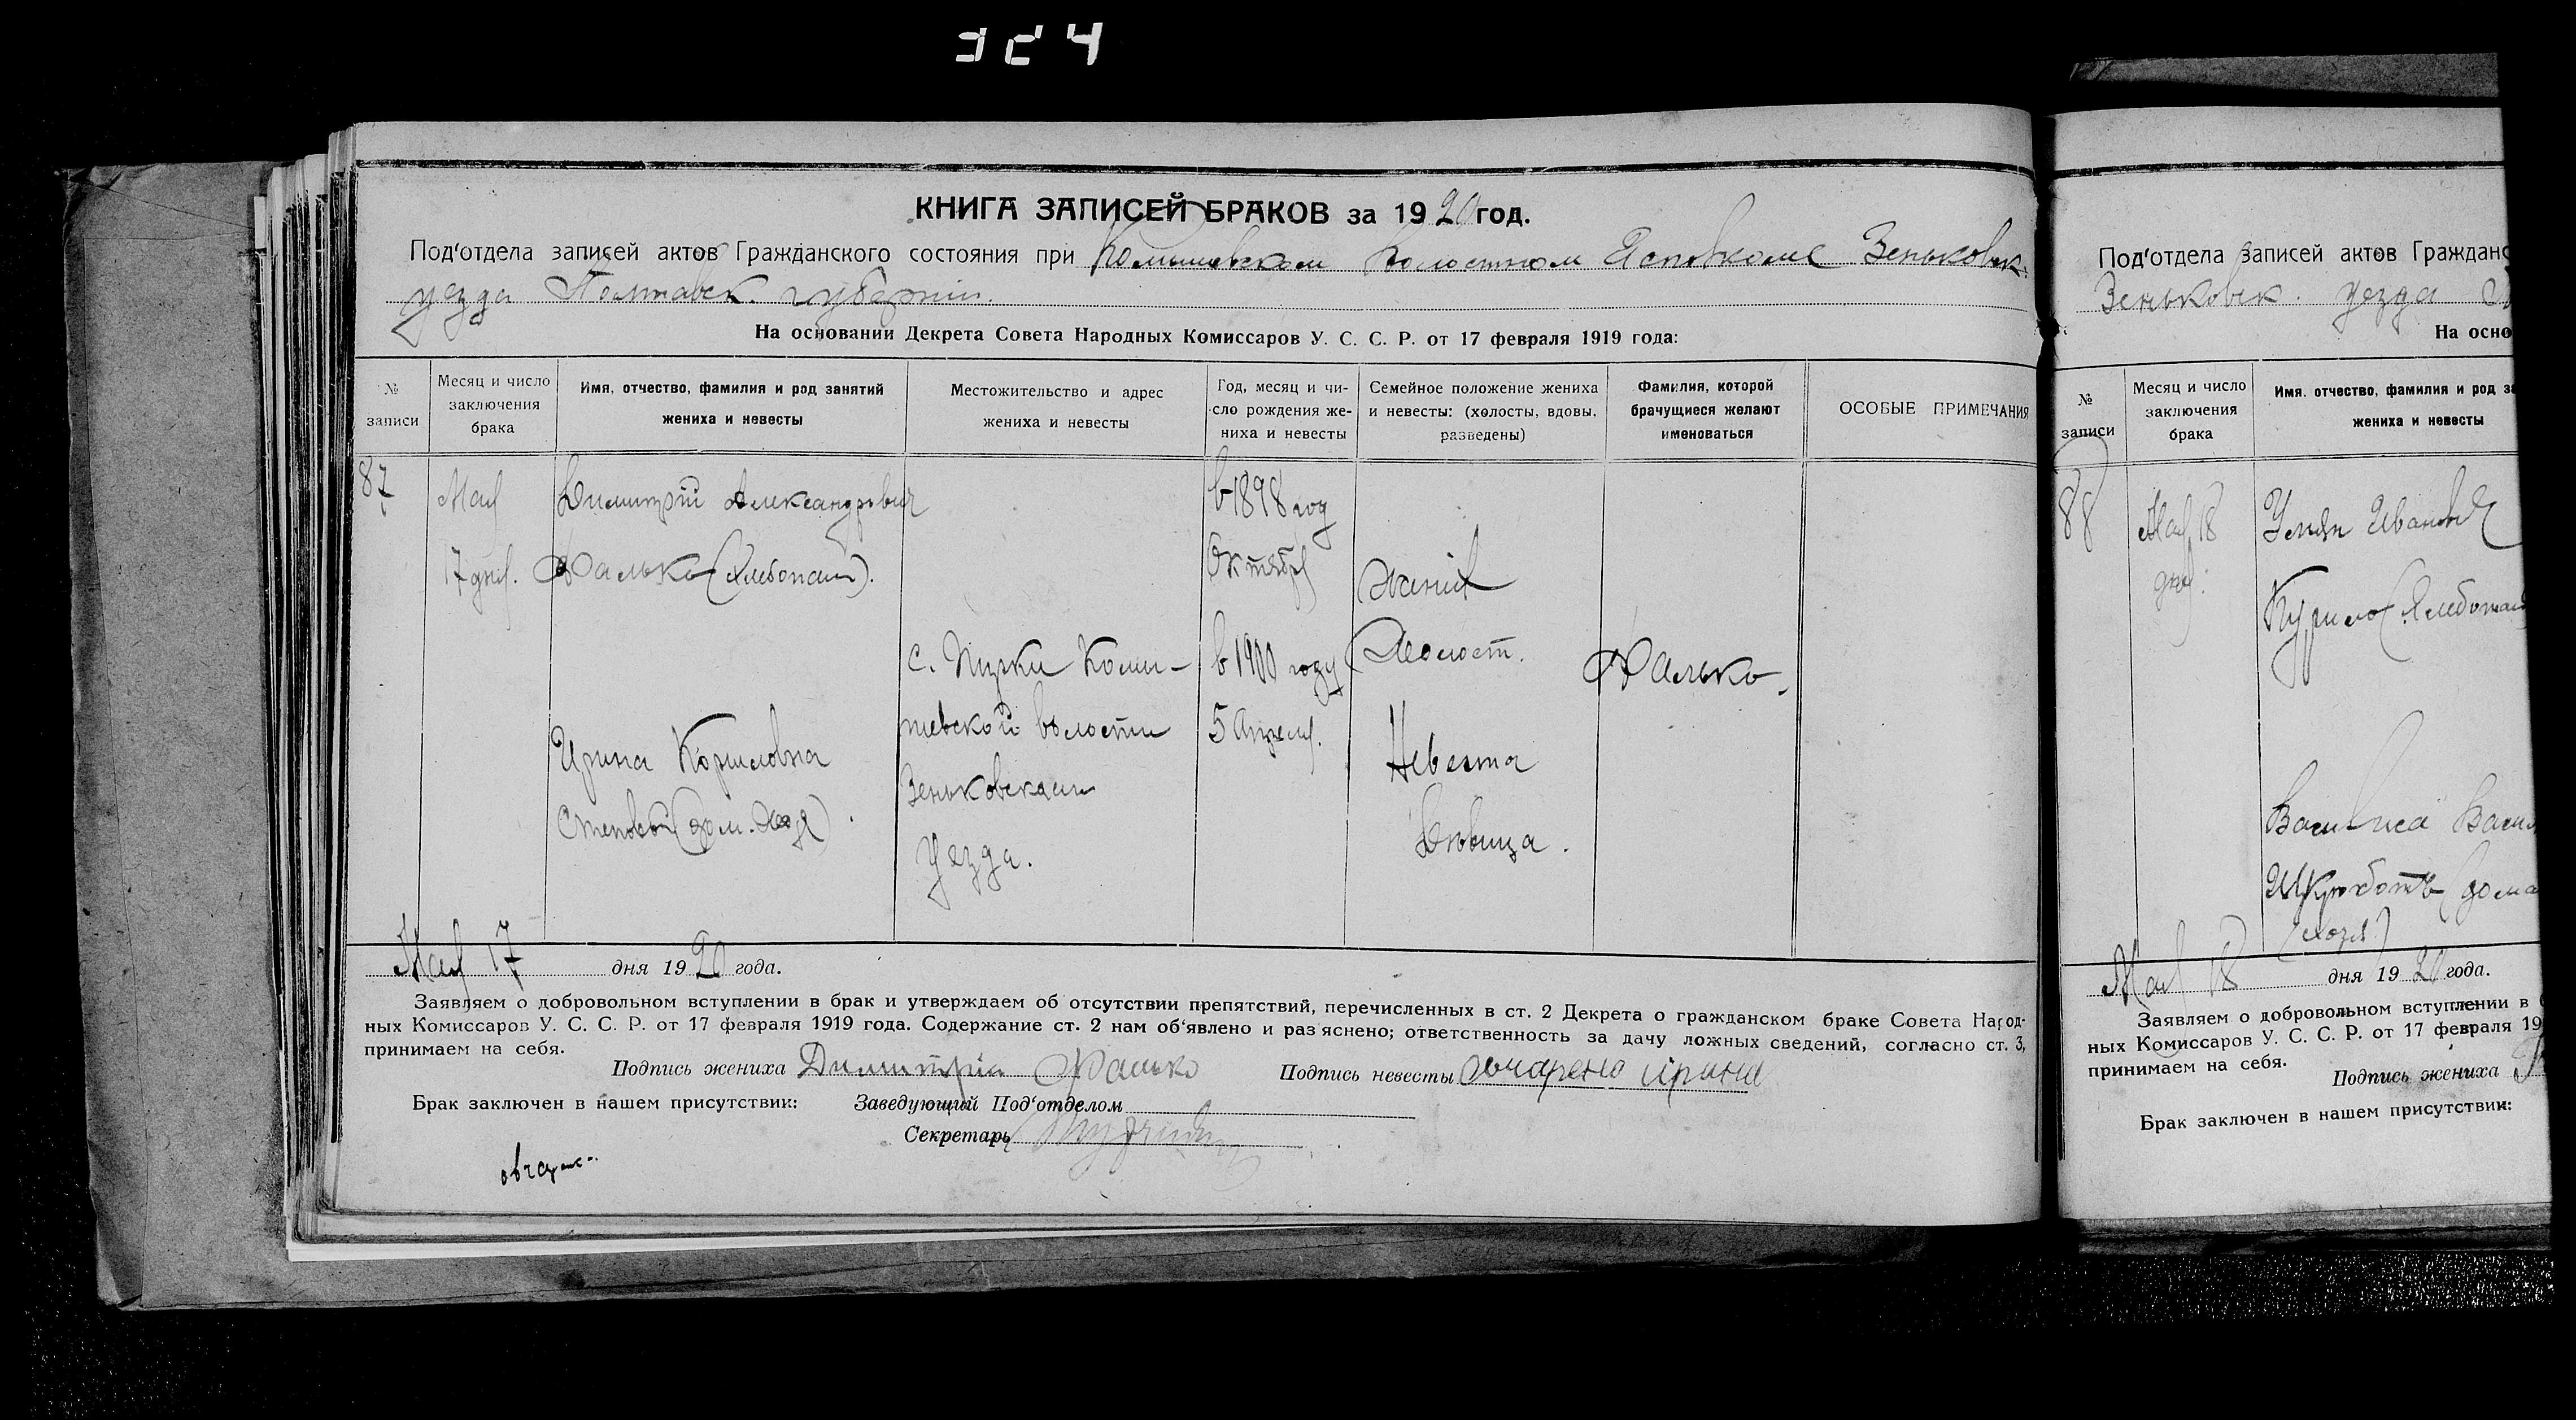 324
КНИГА ЗАПИСЕЙ БРАКОВ за 1920 год.
Под'отдела записей актов Гражданского состояния при Комышевском Волостном Исполкоме Зеньковск.
уезда Полтавск. губернии.
На основании Декрета Совета Народных Комиссаров У. С. С. Р. от 17 февраля 1919 года:
№ записи
Месяц и число заключения брака
Имя, отчество, фамилия и род занятий жениха и невесты
Местожительство и адрес жениха и невесты
Год, месяц и число рождения жениха и невесты
Семейное положение жениха и невесты: (холосты, вдовы, разведены)
Фамилия, которой брачущиеся желают именоваться
ОСОБЫЕ ПРИМЕЧАНИЯ
87
Мая
17 дня.
Димитрий Александрович
Фалько (хлебопаш).
Ирина Корниловна
Степовой (дом. хоз)
с. Пирки Коми-
шевской волости
Зеньковскаго
Уезда.
в 1898 год
Октября
в 1900 году
5 Апреля.
Жених
Холост.
Невеста
Девица.
Фалько.
Мая 17 дня 1920 года.
Заявляем о добровольном вступлении в брак и утверждаем об отсутствии препятствий, перечисленных в ст. 2 Декрета о гражданском браке Совета Народ-
ных Комиссаров У. С. С. Р. от 17 февраля 1919 года. Содержание ст. 2 нам об'явлено и раз'яснено; ответственность за дачу ложных сведений, согласно ст. 3,
принимаем на себя.
Подпись жениха Димитрій Фалько Подпись невесты Ирина
Брак заключен в нашем присутствии: Заведующий Под'отделом
Секретарь
Под'отдела записей актов Гражданс
Зеньковск. уезда
На осно
№ записи
Месяц и число заключения брака
Имя, отчество, фамилия и род за
жениха и невесты
88
Мая 18
дня.
Улян Иванов
Курило (Хлебопаш
Василиса Васил
(дома
хозя)
Мая 18 дня 1920 года.
Заявляем о добровольном вступлении в
ных Комиссаров У. С. С. Р. от 17 февраля 19
принимаем на себя.
Подпись жениха
Брак заключен в нашем присутствии: